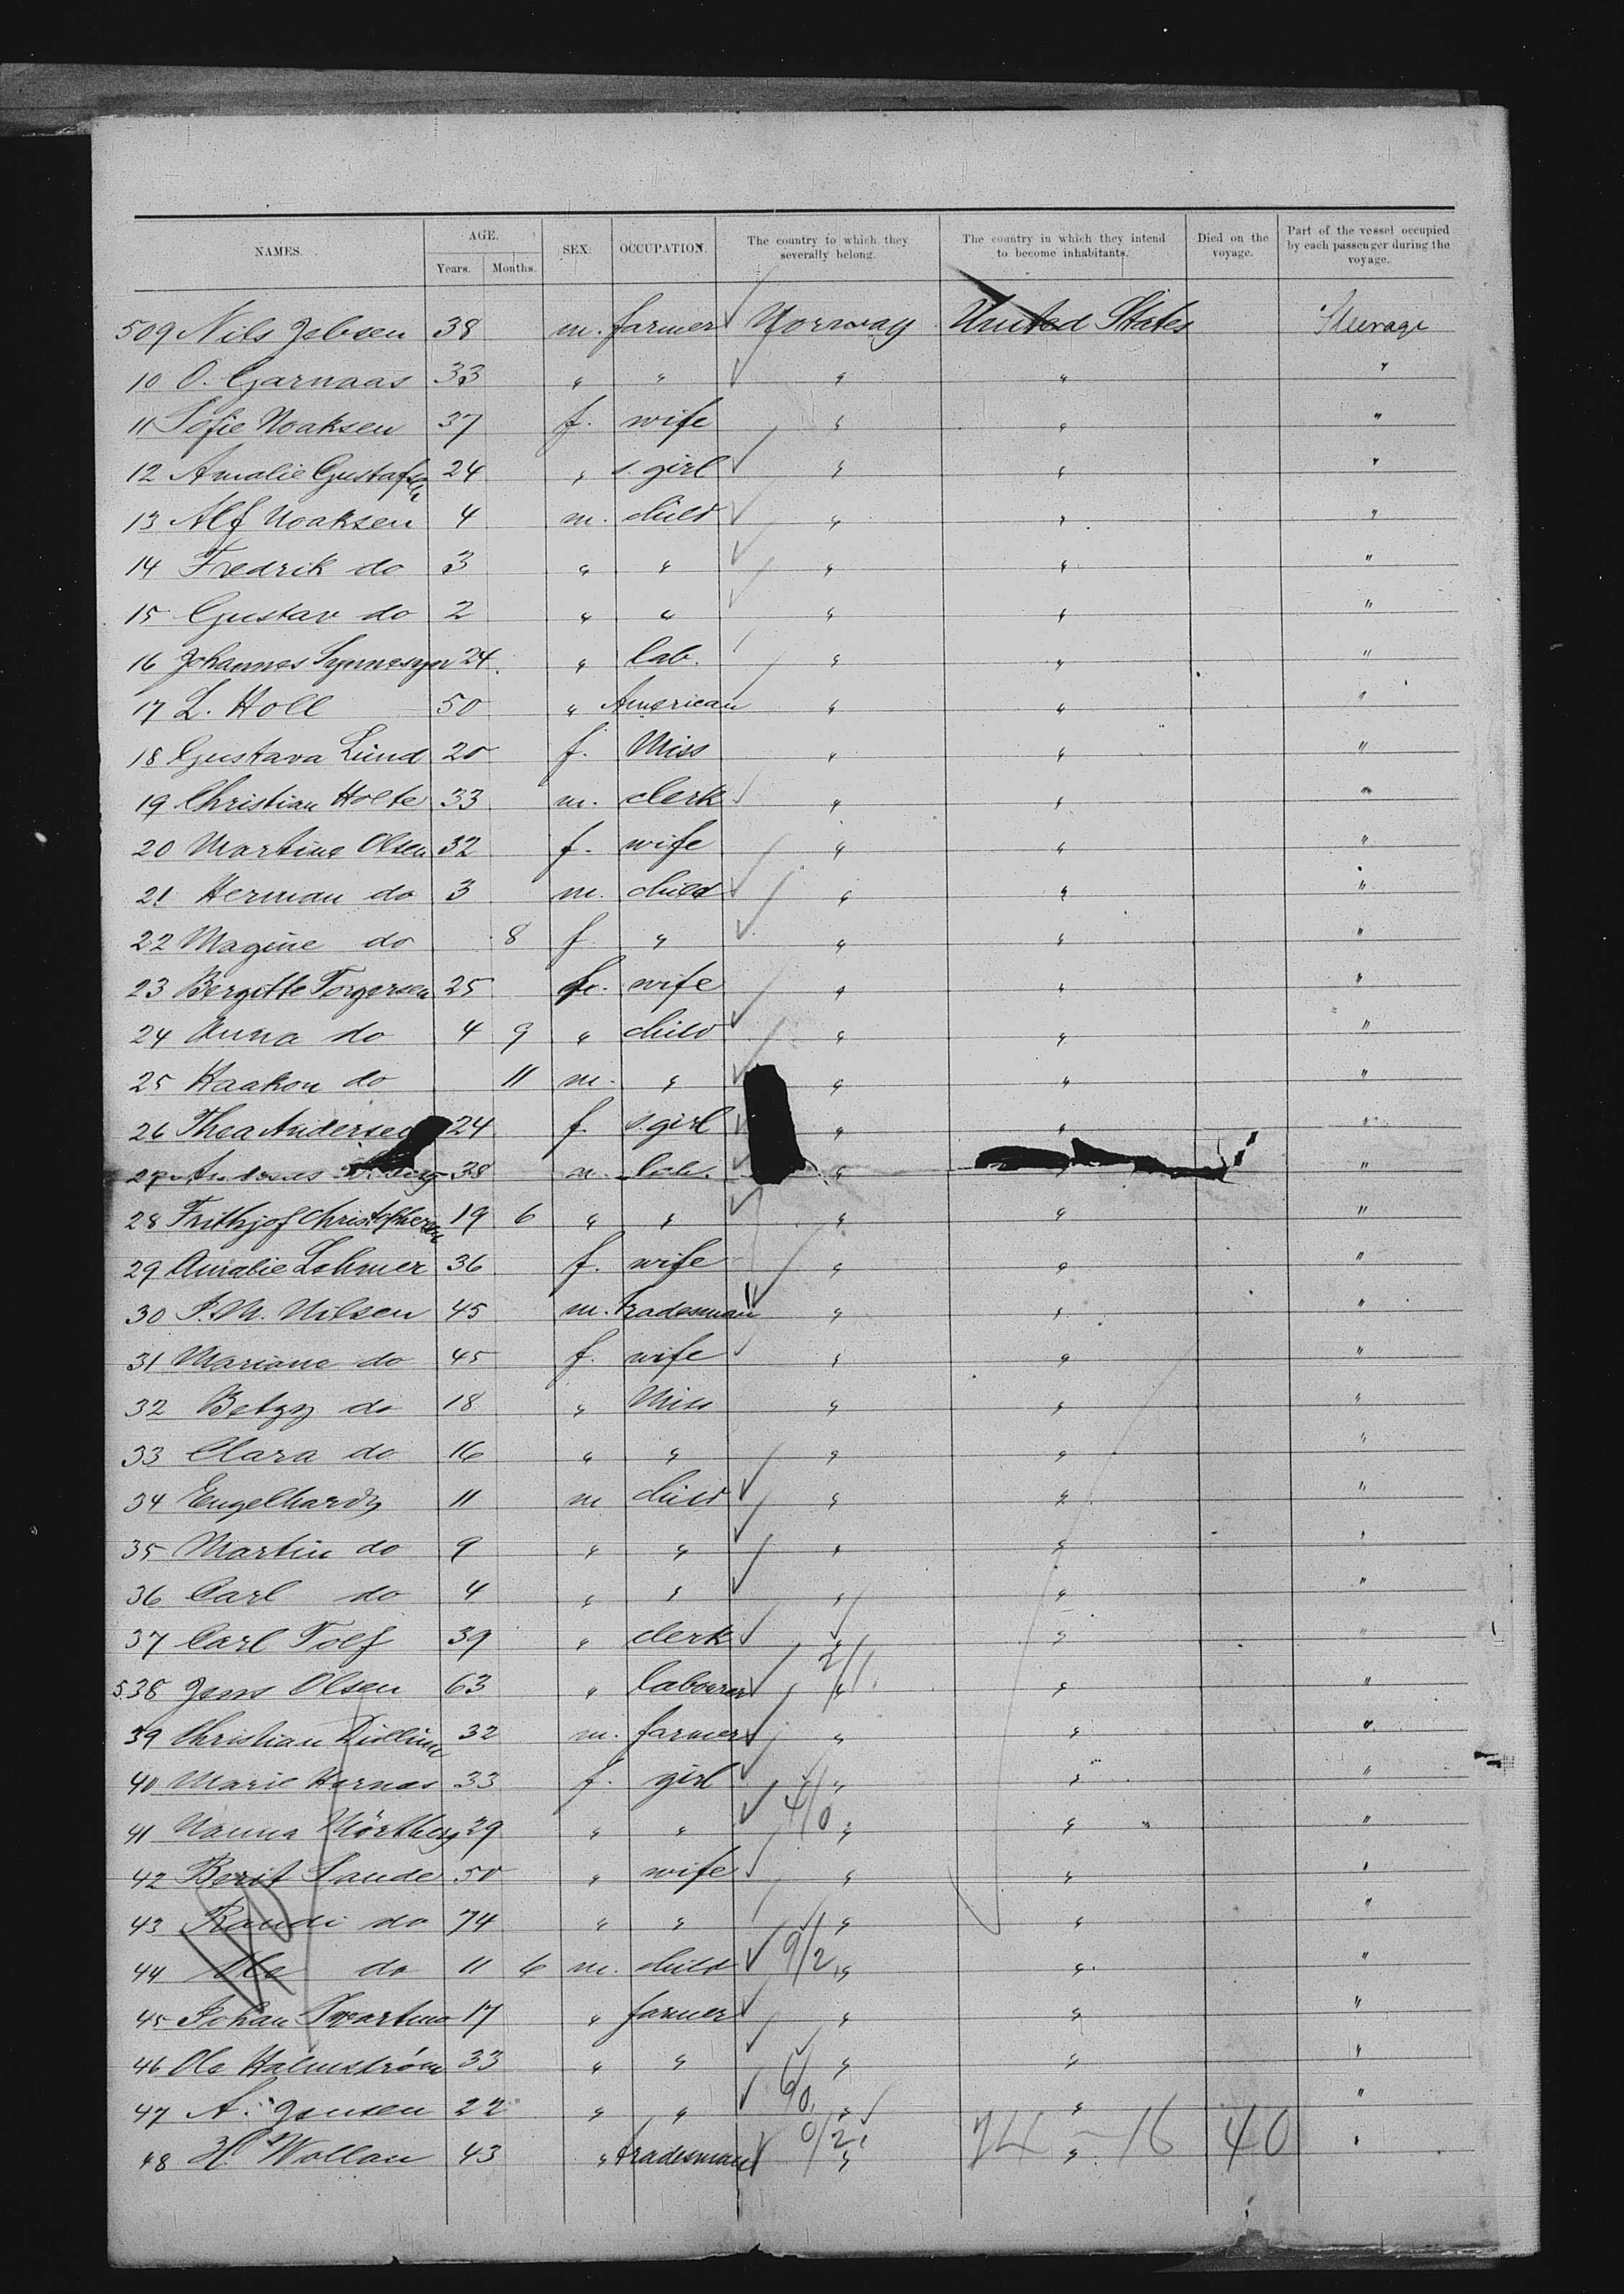 NAMES. AGE. SEX. OCCUPATION. The country to which they severally belong. The country in which they intend to become inhabitants. Died on the voyage. Part of the vessel occupied by each passenger during the voyage.
Years. Months.
509 Nils Jebsen 38 m. farmer Norway United States Steerage
10 O. Garnaas 33 " " " " "
11 Sofie Noaksen 37 f. wife " " "
12 Amalie Gustafsen 24 " s. girl " " "
13 Alf Noaksen 4 m. child " " "
14 Fredrik do 3 " " " " "
15 Gustav do 2 " " " " "
16 Johannes 24 " lab. " " "
17 L. Holl 50 " American " " "
18 Gustava Lund 20 f. Miss " " "
19 Christian Holte 33 m. clerk " " "
20 Martine Olsen 32 f. wife " " "
21 Herman do 3 m. child " " "
22 Magine do 8 f " " " "
23 Bergitte Torgersen 25 f. wife " " "
24 Anna do 4 9 " child " " "
25 Haakon do 11 m. " " " "
26 Thea Andersen 24 f. s. girl " " "
27 38 m. lab. " "
28 Frithjof Christophersen 19 6 " " " " "
29 Amalie Lehmer 36 f. wife " " "
30 P. M. Nilsen 45 m. tradesman " " "
31 Mariane do 45 f. wife " " "
32 Betzy do 18 " Miss " " "
33 Clara do 16 " " " " "
34 Engelhardz 11 m child " " "
35 Martin do 9 " " " " "
36 Carl do 4 " " " " "
37 Carl Tolf 39 " clerk " " "
538 Jens Olsen 63 " labourer 2/1 " " "
39 Christian 32 m. farmer " " "
40 Marie Hernes 33 f. girl " " "
41 Nanna Mörtberg 29 " " 4/0 " " "
42 Berit Sande 50 " wife " " "
43 Randi do 74 " " " " "
44 Ole do 11 6 m. child 9/2 " " "
45 Johan 17 " farmer " " "
46 Ole Halmström 33 " " " " "
47 A. Jensen 22 " " 6/0 " " "
48 H. Wollan 43 " tradesman 0/2 " 74 - 16 " 40 "